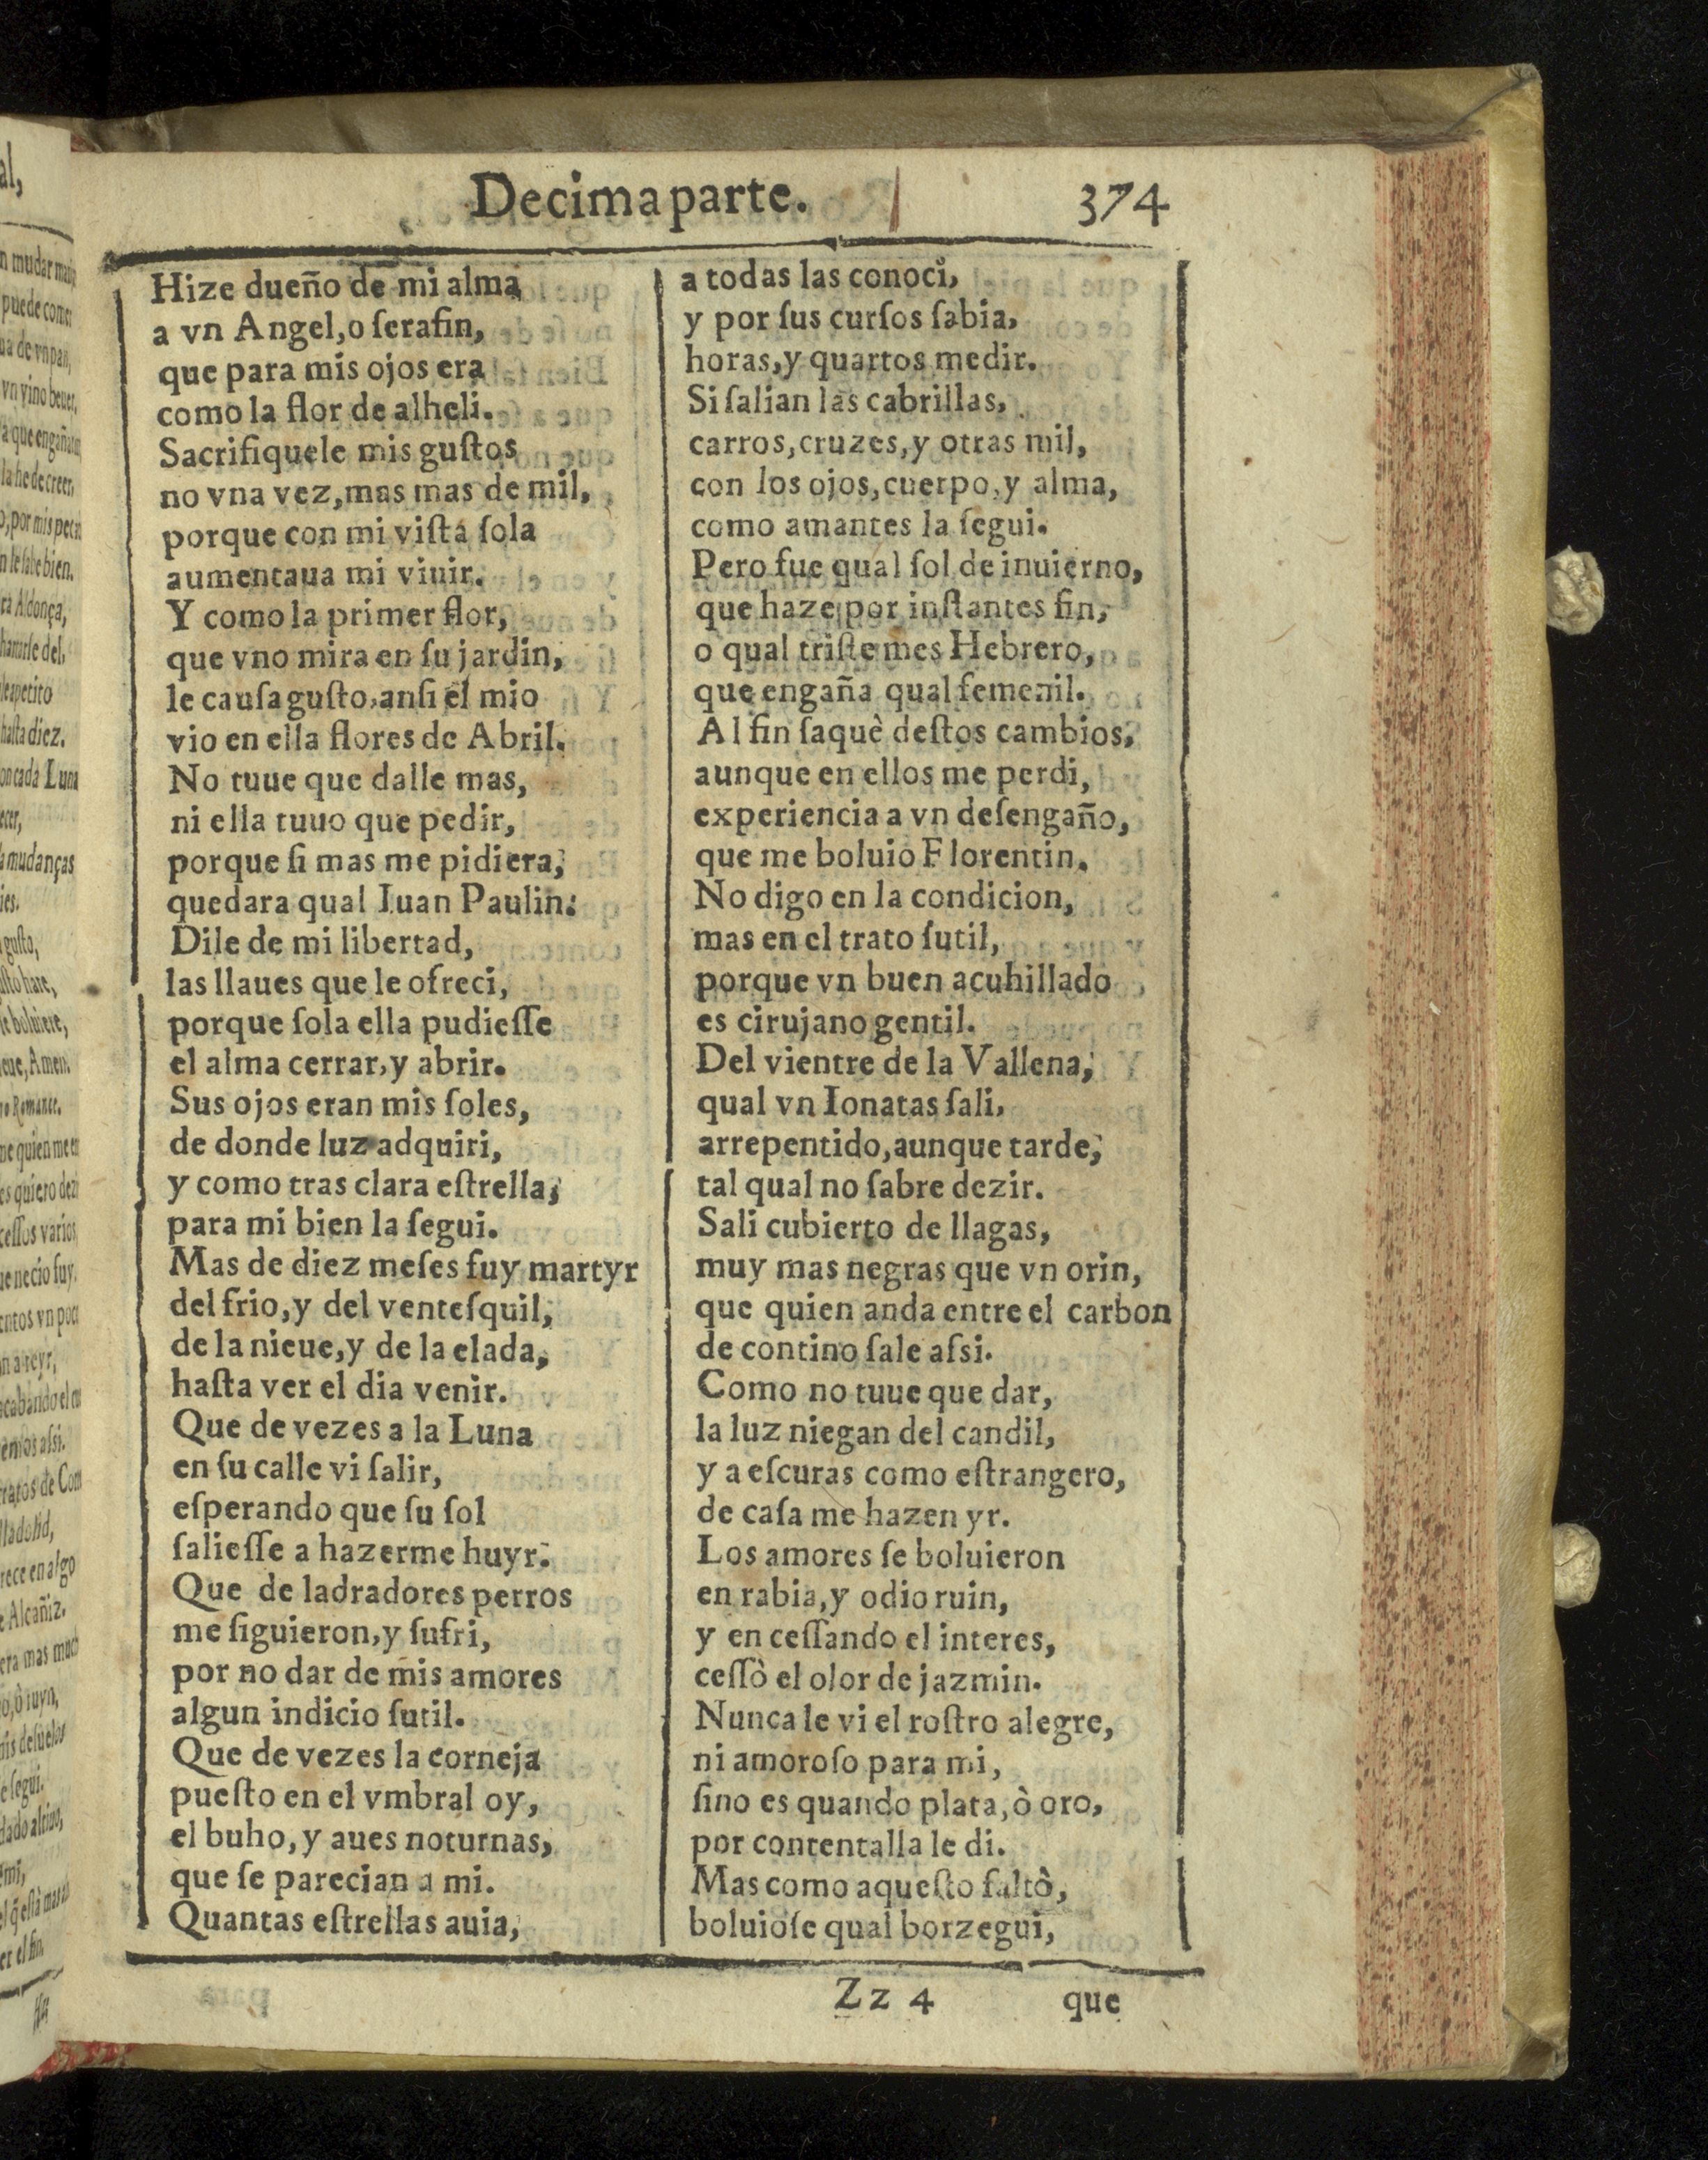 Decima parte. 374
Hize dueño de mi alma
a vn Angel, o ſerafin,
que para mis ojos era
como la flor de alheli.
Sacrifiquele mis guſtos
no vna vez, mas mas de mil,
porque con mi viſta ſola
aumentaua mi viuir.
Y como la primer flor,
que vno mira en ſu jardin,
le cauſa guſto, anſi el mio
vio en ella flores de Abril.
No tuue que dalle mas,
ni ella tuuo que pedir,
porque ſi mas me pidiera,
quedara qual Iuan Paulin.
Dile de mi libertad,
las llaues que le ofreci,
porque ſola ella pudieſſe
el alma cerrar, y abrir.
Sus ojos eran mis ſoles,
de donde luz adquiri,
y como tras clara eſtrella,
para mi bien la ſegui.
Mas de diez meſes fuy martyr
del frio, y del venteſquil,
de la nieue, y de la elada,
haſta ver el dia venir.
Que de vezes a la Luna
en ſu calle vi ſalir,
eſperando que ſu ſol
ſalieſſe a hazerme huyr.
Que de ladradores perros
me ſiguieron, y ſufri,
por no dar de mis amores
algun indicio ſutil.
Que de vezes la corneja
pueſto en el vmbral oy,
el buho, y aues noturnas,
que ſe parecian a mi.
Quantas eſtrellas auia,
a todas las conoci,
y por ſus curſos ſabia,
horas, y quartos medir.
Si ſalian las cabrillas,
carros, cruzes, y otras mil,
con los ojos, cuerpo, y alma,
como amantes la ſegui.
Pero fue qual ſol de inuierno,
que haze por inſtantes fin,
o qual triſte mes Hebrero,
que engaña qual femenil.
Al fin ſaquè deſtos cambios,
aunque en ellos me perdi,
experiencia a vn deſengaño,
que me boluio Florentin.
No digo en la condicion,
mas en el trato ſutil,
porque vn buen acuhillado
es cirujano gentil.
Del vientre de la Vallena,
qual vn Ionatas ſali,
arrepentido, aunque tarde,
tal qual no ſabre dezir.
Sali cubierto de llagas,
muy mas negras que vn orin,
que quien anda entre el carbon
de contino ſale aſsi.
Como no tuue que dar,
la luz niegan del candil,
y a eſcuras como eſtrangero,
de caſa me hazen yr.
Los amores ſe boluieron
en rabia, y odio ruin,
y en ceſſando el interes,
ceſſò el olor de jazmin.
Nunca le vi el roſtro alegre,
ni amoroſo para mi,
ſino es quando plata, ò oro,
por contentalla le di.
Mas como aqueſto faltò,
boluioſe qual borzegui,
Zz 4 que